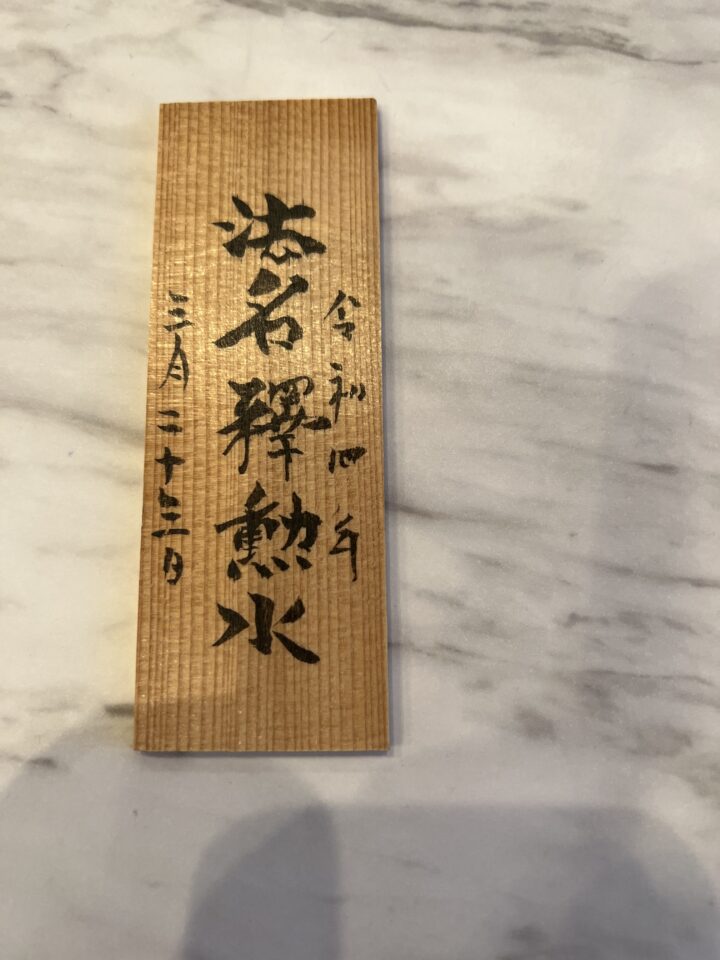 令和四年
法名釋勲水
三月二十三日